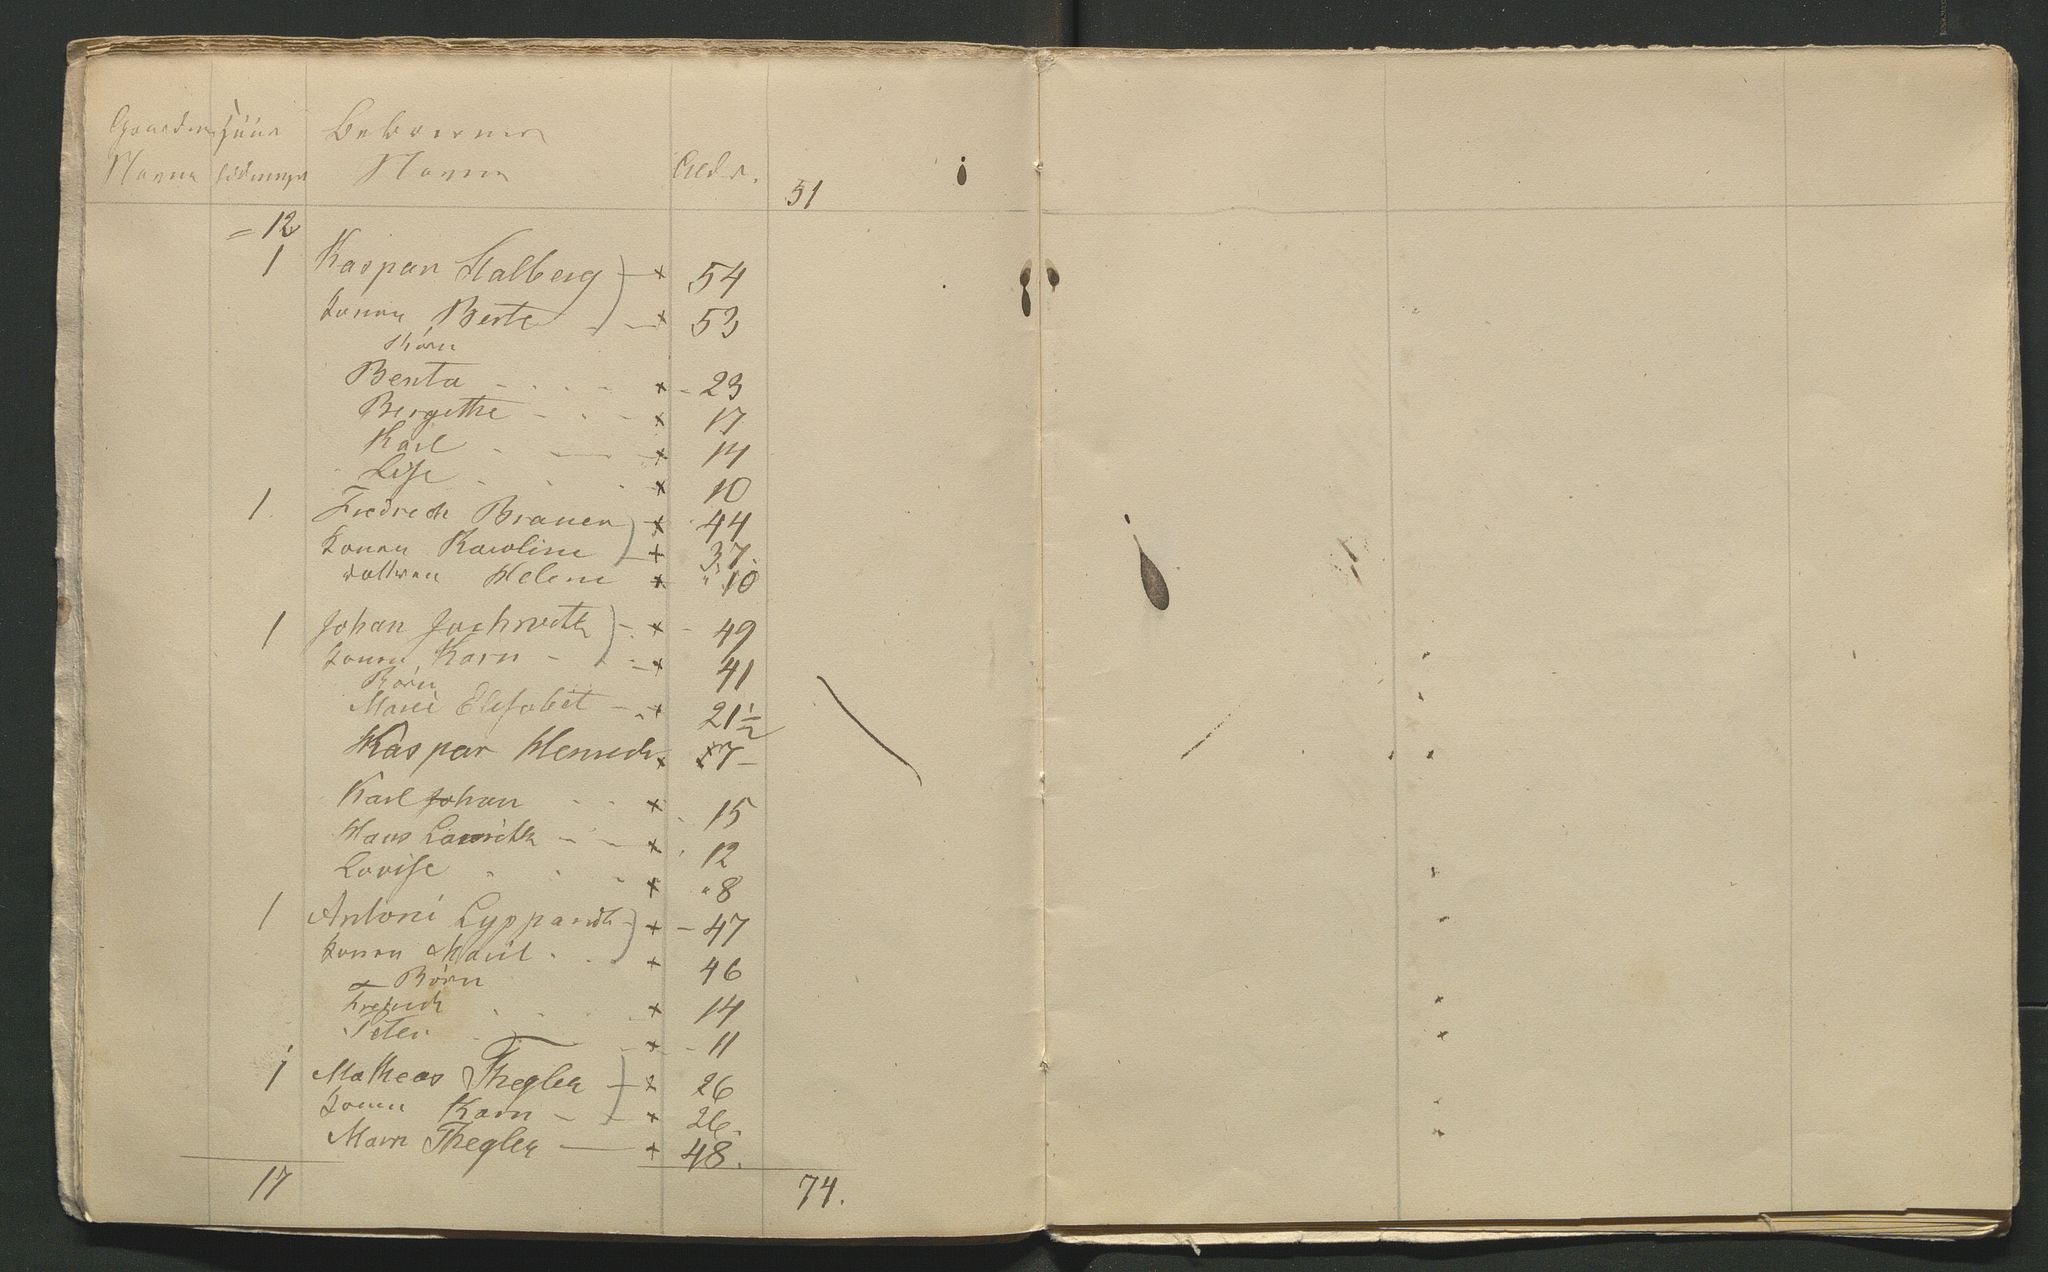 Gaardens Huus Beboernes
Navne fødninger Navne Alder. 51
= 12
1 Kaspar Stalberg) — x 54
Konen Berte - — x 53
Børn
Berta - . . - x - 23
Bergithe - . - x 17
Karl . — — x 14
Lise . . . x 10
1. Fredrech Brauer) — x 44
Konen Karoline) — x 37.
datteren Helene x " 10
1 Johan Jochndth) - . x - 49
Konen Karn - ) . - x 41
Børn
Marie Elisabet - . x 21 1/2
Kaspar Henrich x 17 -
Karl Johan . . x 15
Hans Lauridtz - - x 12
Lovise . . - x " 8
1 Antoni Lyppardth) x - 47
Konen Maril . . ) x 46
Børn
Fredrich . . . x 14
Peter . . - x - 11
1 Matheas Thegler) — x 26
Konen Karn - ) - x 26.
Marn Thegler — x 48.
17 74.